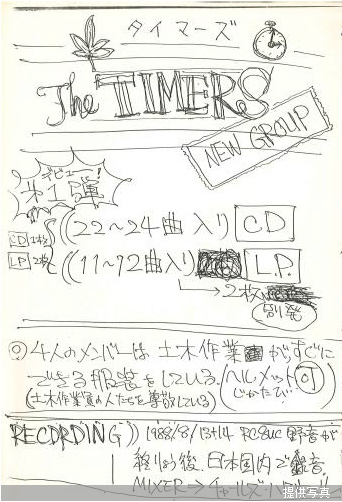 タイマーズ
The TIMERS
NEW GROUP
デビュー!
オ1弾
CD 1枚 22〜24曲入り CD
LP 2枚 11〜12曲入り L.P.
→2枚
別発
◎4人のメンバーは土木作業がすぐに
できる服装をしている。(ヘルメット可
じかたび
(土木作業員の人たちを尊敬している)
RECORDING 1988/8/13+14 RCSUC 野音が
終りょう後、日本国内で録音。
MIXER→チャールズ
提供写真